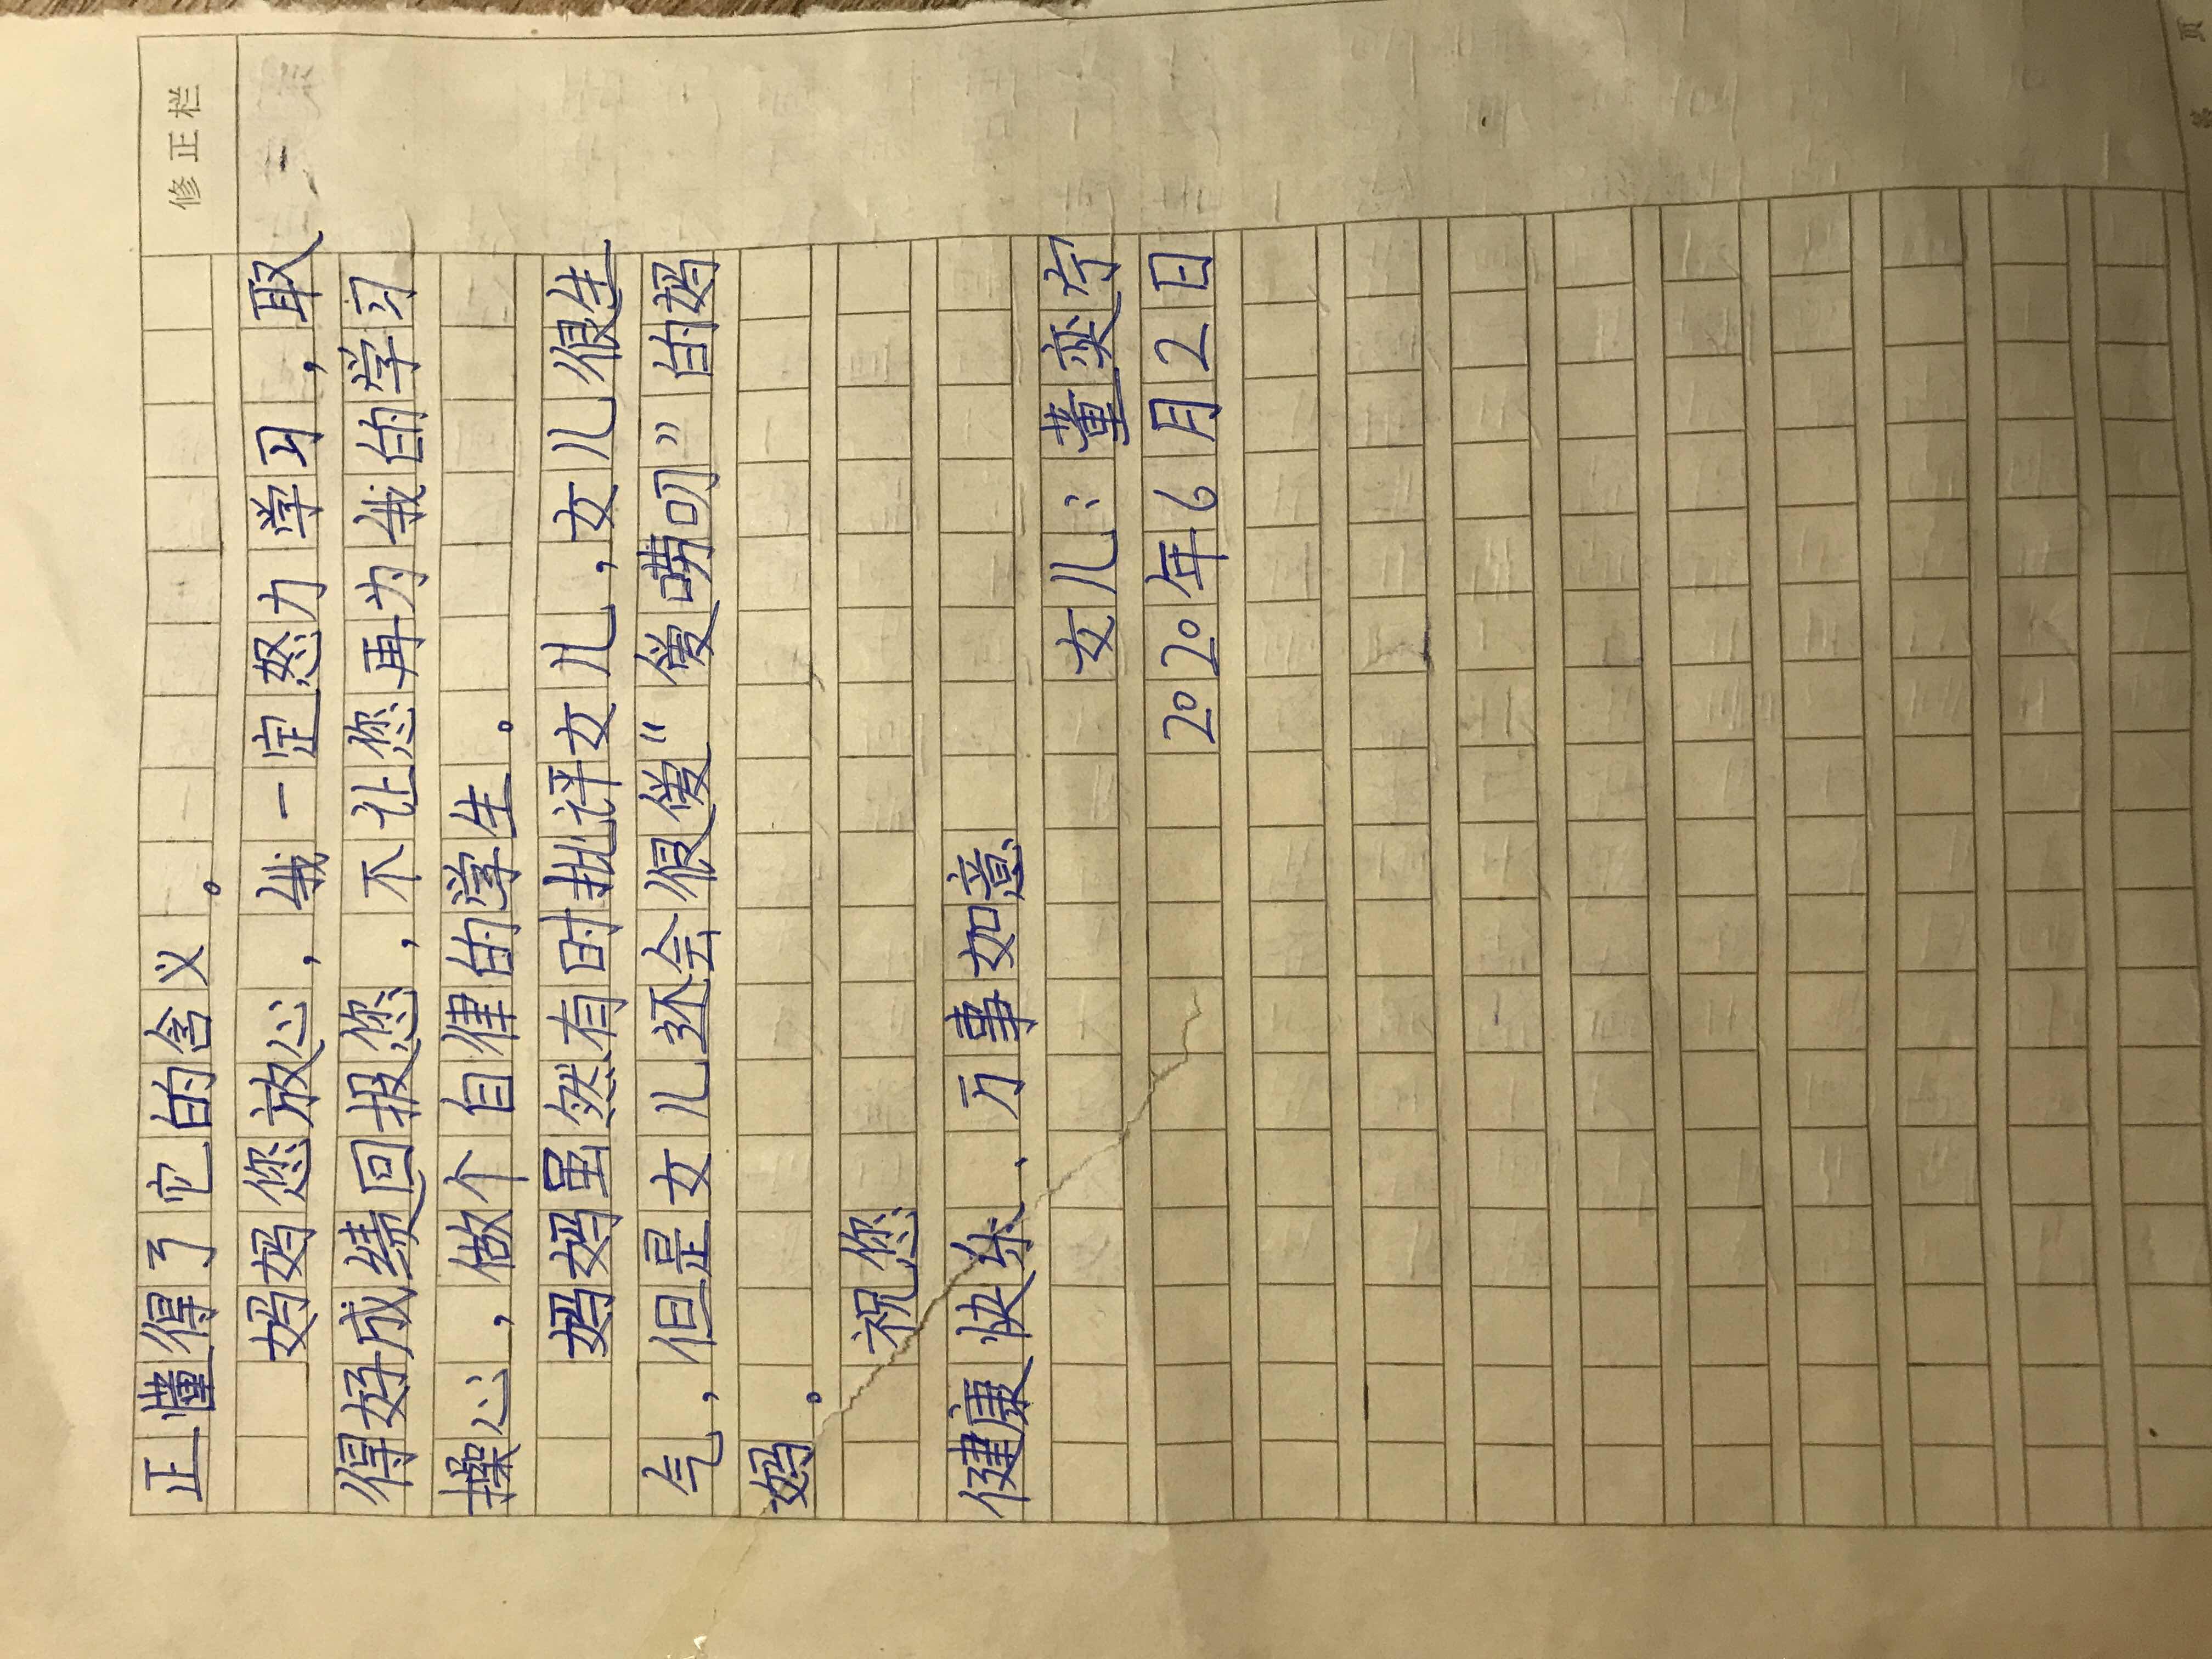 修正栏
正懂得了它的含义。
妈妈您放心，我一定努力学习，取
得好成绩回报您，不让您再为我的学习
操心，做个自律的学生。
妈妈虽然有时批评女儿，女儿很生
气，但是女儿还会很爱“爱唠叨”的妈
妈。
祝您
健康快乐、万事如意
女儿：董奕疗
2020年6月2日
页